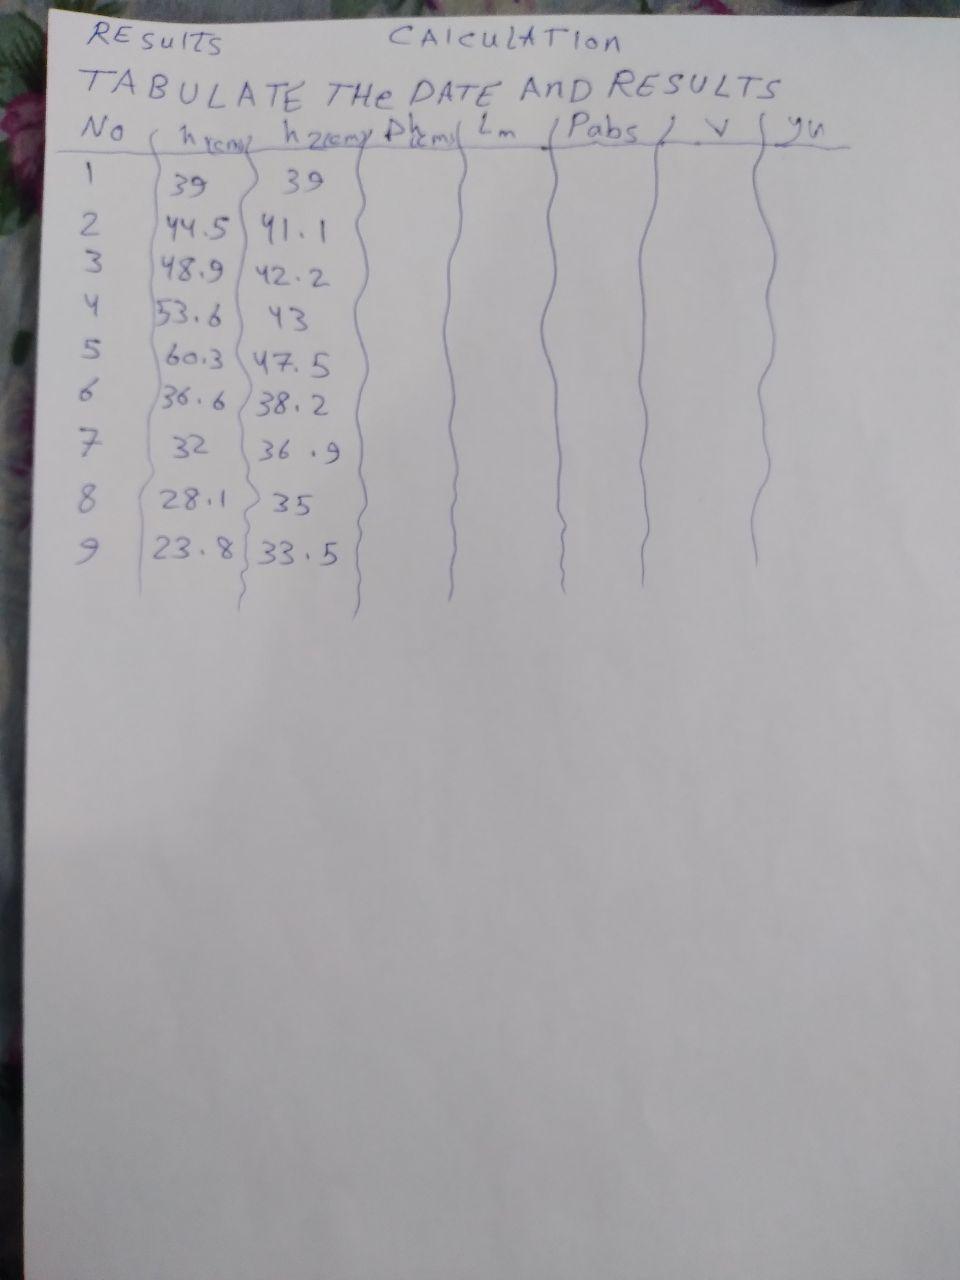 RESULTS CALCULATION
TABULATE THe DATE AnD RESULTS
No h1(cm) h2(cm) Dh(cm) Lm Pabs V
1 39 39
2 44.5 41.1
3 48.9 42.2
4 53.6 43
5 60.3 47.5
6 36.6 38.2
7 32 36.9
8 28.1 35
9 23.8 33.5